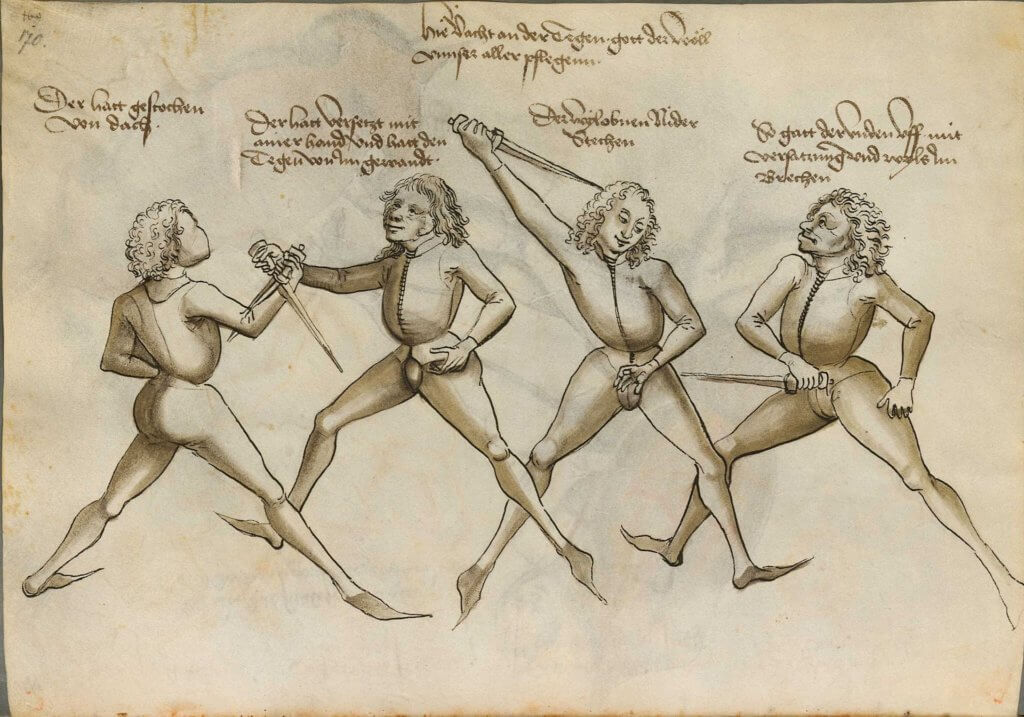 170.
Hie Vacht an der Tegen gott der wöll
vnnser aller pflegenn.
Der hatt gestochen
von dach.
Der hatt versetzt mit
ainer hand vnd hatt den
Tegen von Im gewandt.
Der will obnen Nider
Stechen
So gatt der vnden vff mit
versatzung vnd wyls Im
Brechen